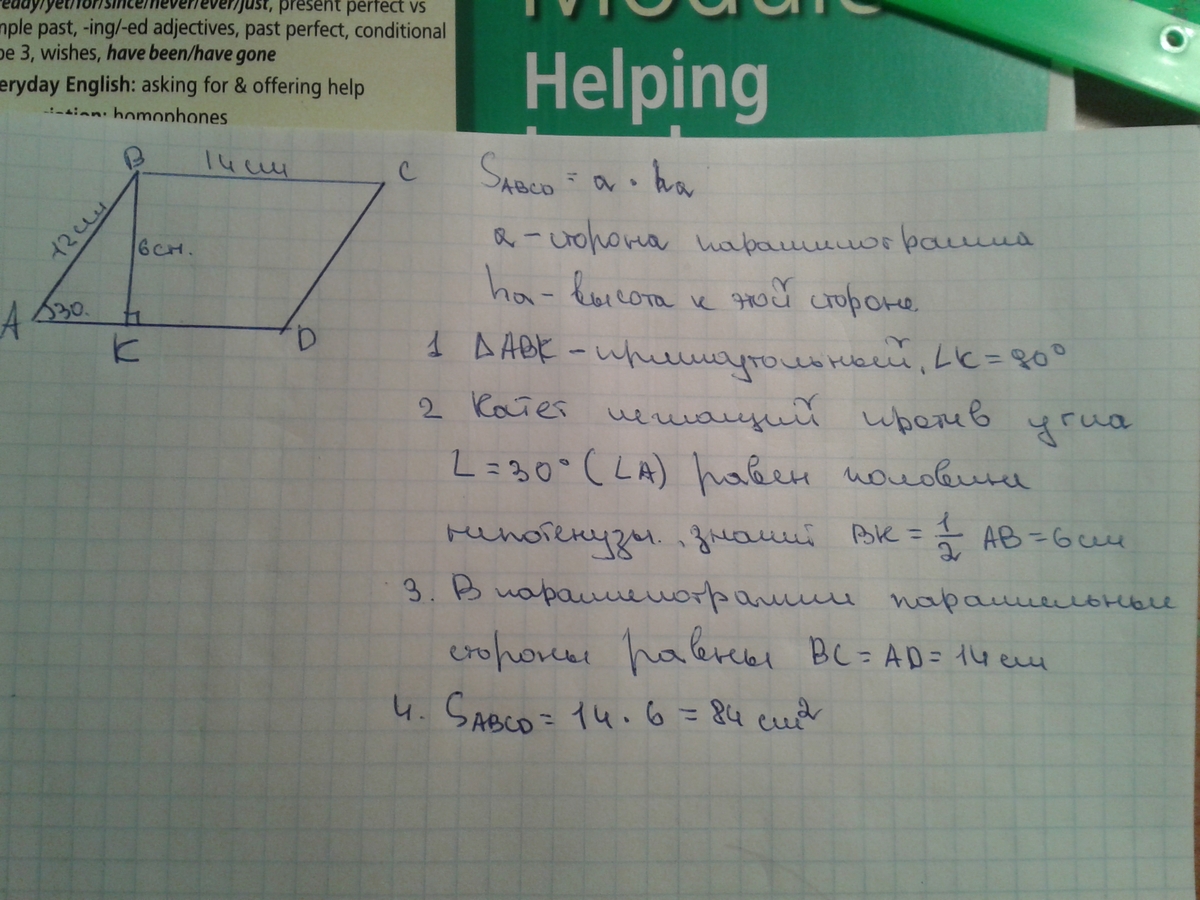 ready/yet/for/since/never/ever/just, present perfect vs
mple past, -ing/-ed adjectives, past perfect, conditional
pe 3, wishes, have been/have gone
eryday English: asking for & offering help
homophones
Module
Helping
B 14 см C
12 см
6 см.
A 30.
K
D
S ABCD = a · ha
a – сторона параллелограмма
ha – высота к этой стороне
1 ΔABK – прямоугольный, ∠K = 90°
2 Катет лежащий против угла
∠ = 30° (∠A) равен половине
гипотенузы, значит BK = 1/2 AB = 6 см
3. В параллелограмме параллельные
стороны равны BC = AD = 14 см
4. S ABCD = 14 · 6 = 84 см²